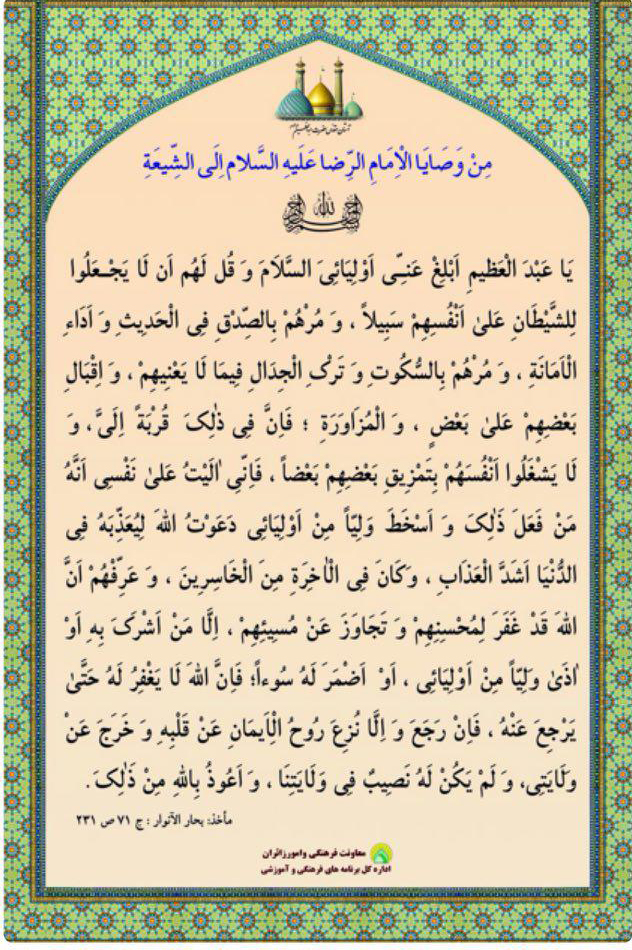 آستان مقدس حضرت عبدالعظیم
مِنْ وَصَايَا الْاِمَامِ الرِّضا عَلَيهِ السَّلام اِلَى الشِّيعَةِ
بسم الله الرحمن الرحيم
يَا عَبْدَ الْعَظيمِ اَبْلِغْ عَنّـِی اَوْلِيَائِیَ السَّلَامَ وَ قُل لَهُم اَن لَا يَجْـعَلُوا
لِلشَّيْطَانِ عَلىٰ اَنْفُسِهِمْ سَبِيلاً ، وَ مُرْهُمْ بِالصِّدْقِ فِی الْحَدِيثِ وَ اَدَاءِ
الْاَمَانَةِ ، وَ مُرْهُمْ بِالسُّكُوتِ وَ تَرْكِ الْجِدَالِ فِيمَا لَا يَعْنِيهِمْ ، وَ اِقْبَالِ
بَعْضِهِمْ عَلىٰ بَعْضٍ ، وَ الْمُزَاوَرَةِ ؛ فَاِنَّ فِی ذٰلِکَ قُرْبَةً اِلَیَّ ، وَ
لَا يَشْغَلُوا اَنْفُسَهُمْ بِتَمْزِيقِ بَعْضِهِمْ بَعْضاً ، فَاِنّی اٰلَيْتُ عَلىٰ نَفْسِی اَنَّهُ
مَنْ فَعَلَ ذٰلِکَ وَ اَسْخَطَ وَلِيّاً مِنْ اَوْلِيَائِی دَعَوْتُ اللهَ لِيُعَذِّبَهُ فِی
الدُّنْيَا اَشَدَّ الْعَذَابِ ، وَكَانَ فِی الْاٰخِرَةِ مِنَ الْخَاسِرِينَ ، وَ عَرِّفْهُمْ اَنَّ
اللهَ قَدْ غَفَرَ لِمُحْسِنِهِمْ وَ تَجَاوَزَ عَنْ مُسِيئِهِمْ ، اِلَّا مَنْ اَشْرَکَ بِهِ اَوْ
اٰذىٰ وَلِيّاً مِنْ اَوْلِيَائِی ، اَوْ اَضْمَرَ لَهُ سُوءاً؛ فَاِنَّ اللهَ لَا يَغْفِرُ لَهُ حَتَّىٰ
يَرْجِعَ عَنْهُ ، فَاِنْ رَجَعَ وَ اِلَّا نُزِعَ رُوحُ الْاِيمَانِ عَنْ قَلْبِهِ وَ خَرَجَ عَنْ
وِلَايَتِی، وَ لَمْ يَكُنْ لَهُ نَصِيبٌ فِی وِلَايَتِنَا ، وَ اَعُوذُ بِاللهِ مِنْ ذٰلِکَ .
مأخذ: بحار الآنوار : ج ٧١ ص ٢٣١
معاونت فرهنگی وامورزائران
اداره کل برنامه های فرهنگی و آموزشی